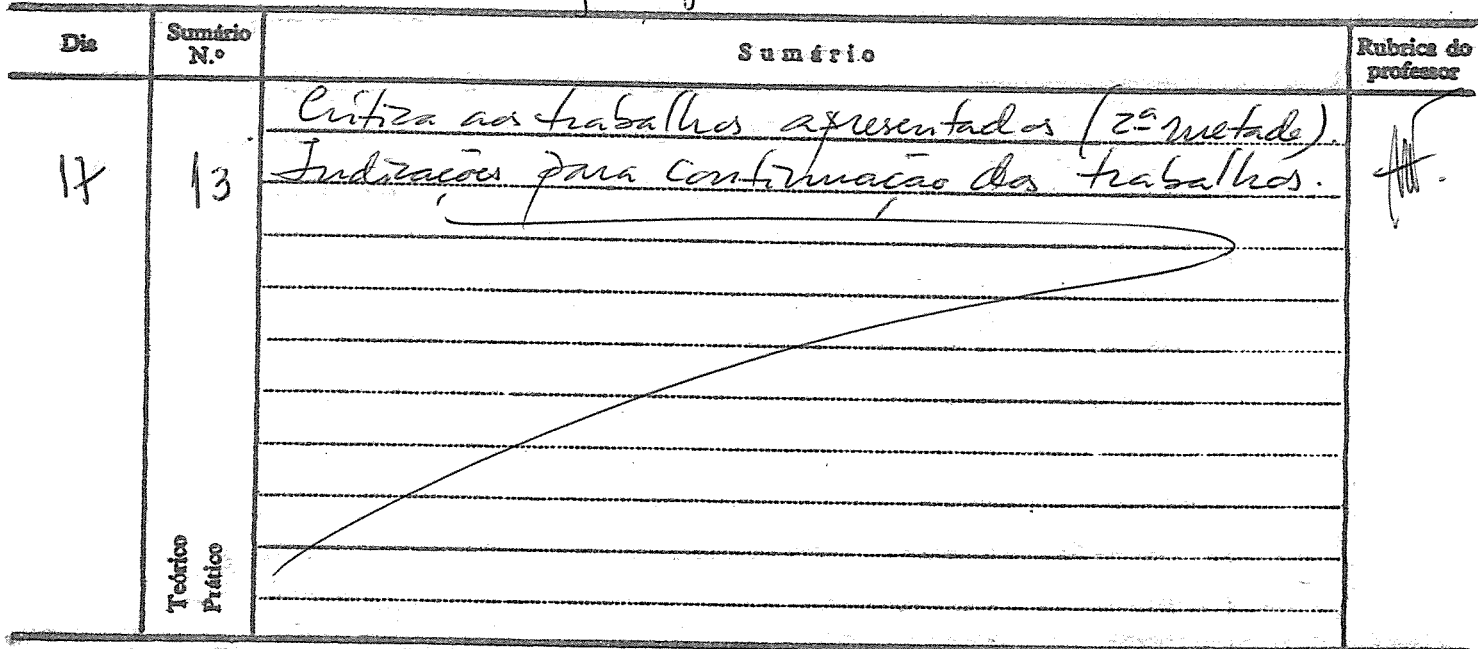 Dia
Sumário N.º
Sumário
Rubrica do professor
17
13
Crítica aos trabalhos apresentados (2ª metade).
Indicações para continuação dos trabalhos.
Teórico
Prático